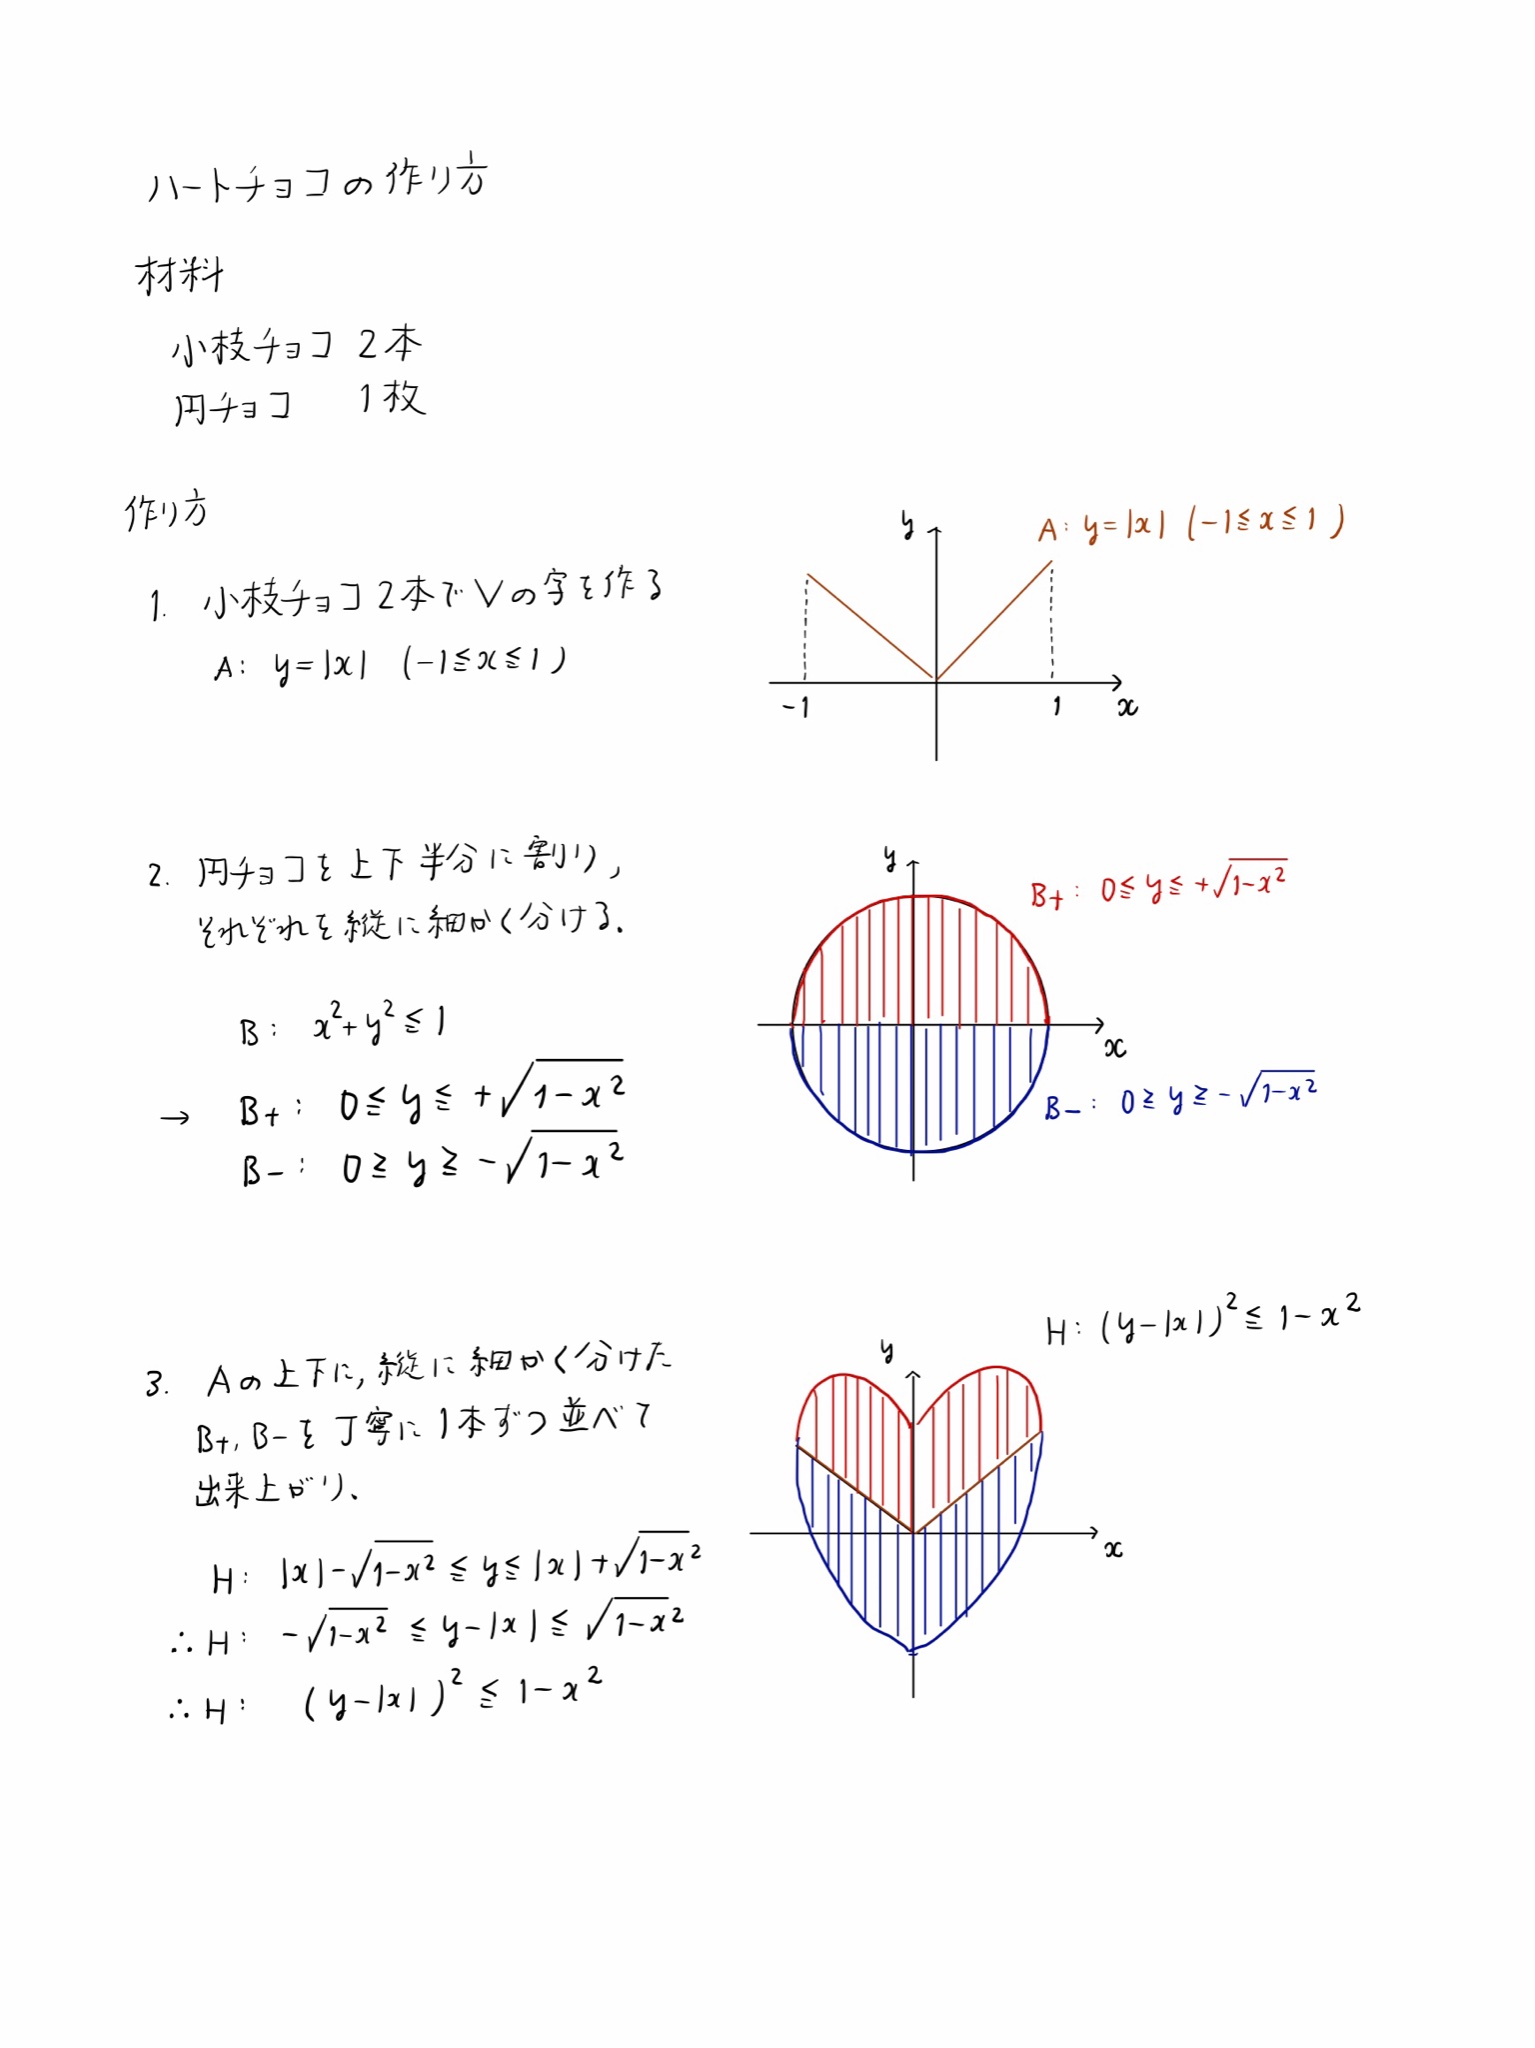 ハートチョコの作り方
材料
小枝チョコ 2本
円チョコ 1枚
作り方
1. 小枝チョコ2本でVの字を作る
A: y=|x| (-1≦x≦1)
y
A: y=|x| (-1≦x≦1)
-1 1 x
2. 円チョコを上下半分に割り,
それぞれを縦に細かく分ける.
B: x²+y²≦1
→ B+: 0≦y≦+√(1-x²)
B-: 0≧y≧-√(1-x²)
y
B+: 0≦y≦+√(1-x²)
x
B-: 0≧y≧-√(1-x²)
3. Aの上下に,縦に細かく分けた
B+, B-を丁寧に1本ずつ並べて
出来上がり.
H: |x|-√(1-x²)≦y≦|x|+√(1-x²)
∴H: -√(1-x²)≦y-|x|≦√(1-x²)
∴H: (y-|x|)²≦1-x²
H: (y-|x|)²≦1-x²
y
x